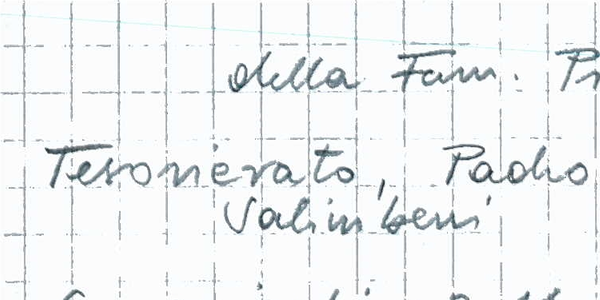 della Fam. Pr
Tesorierato, Padro
Valimberi